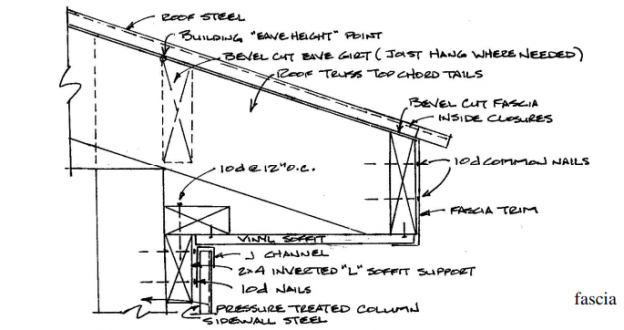 ROOF STEEL
BUILDING "EAVE HEIGHT" POINT
BEVEL CUT EAVE GIRT (JOIST HANG WHERE NEEDED)
ROOF TRUSS TOP CHORD TAILS
BEVEL CUT FASCIA
INSIDE CLOSURES
10d @ 12" O.C.
10d COMMON NAILS
FASCIA TRIM
VINYL SOFFIT
J CHANNEL
2x4 INVERTED "L" SOFFIT SUPPORT
10d NAILS
fascia
PRESSURE TREATED COLUMN
SIDEWALL STEEL